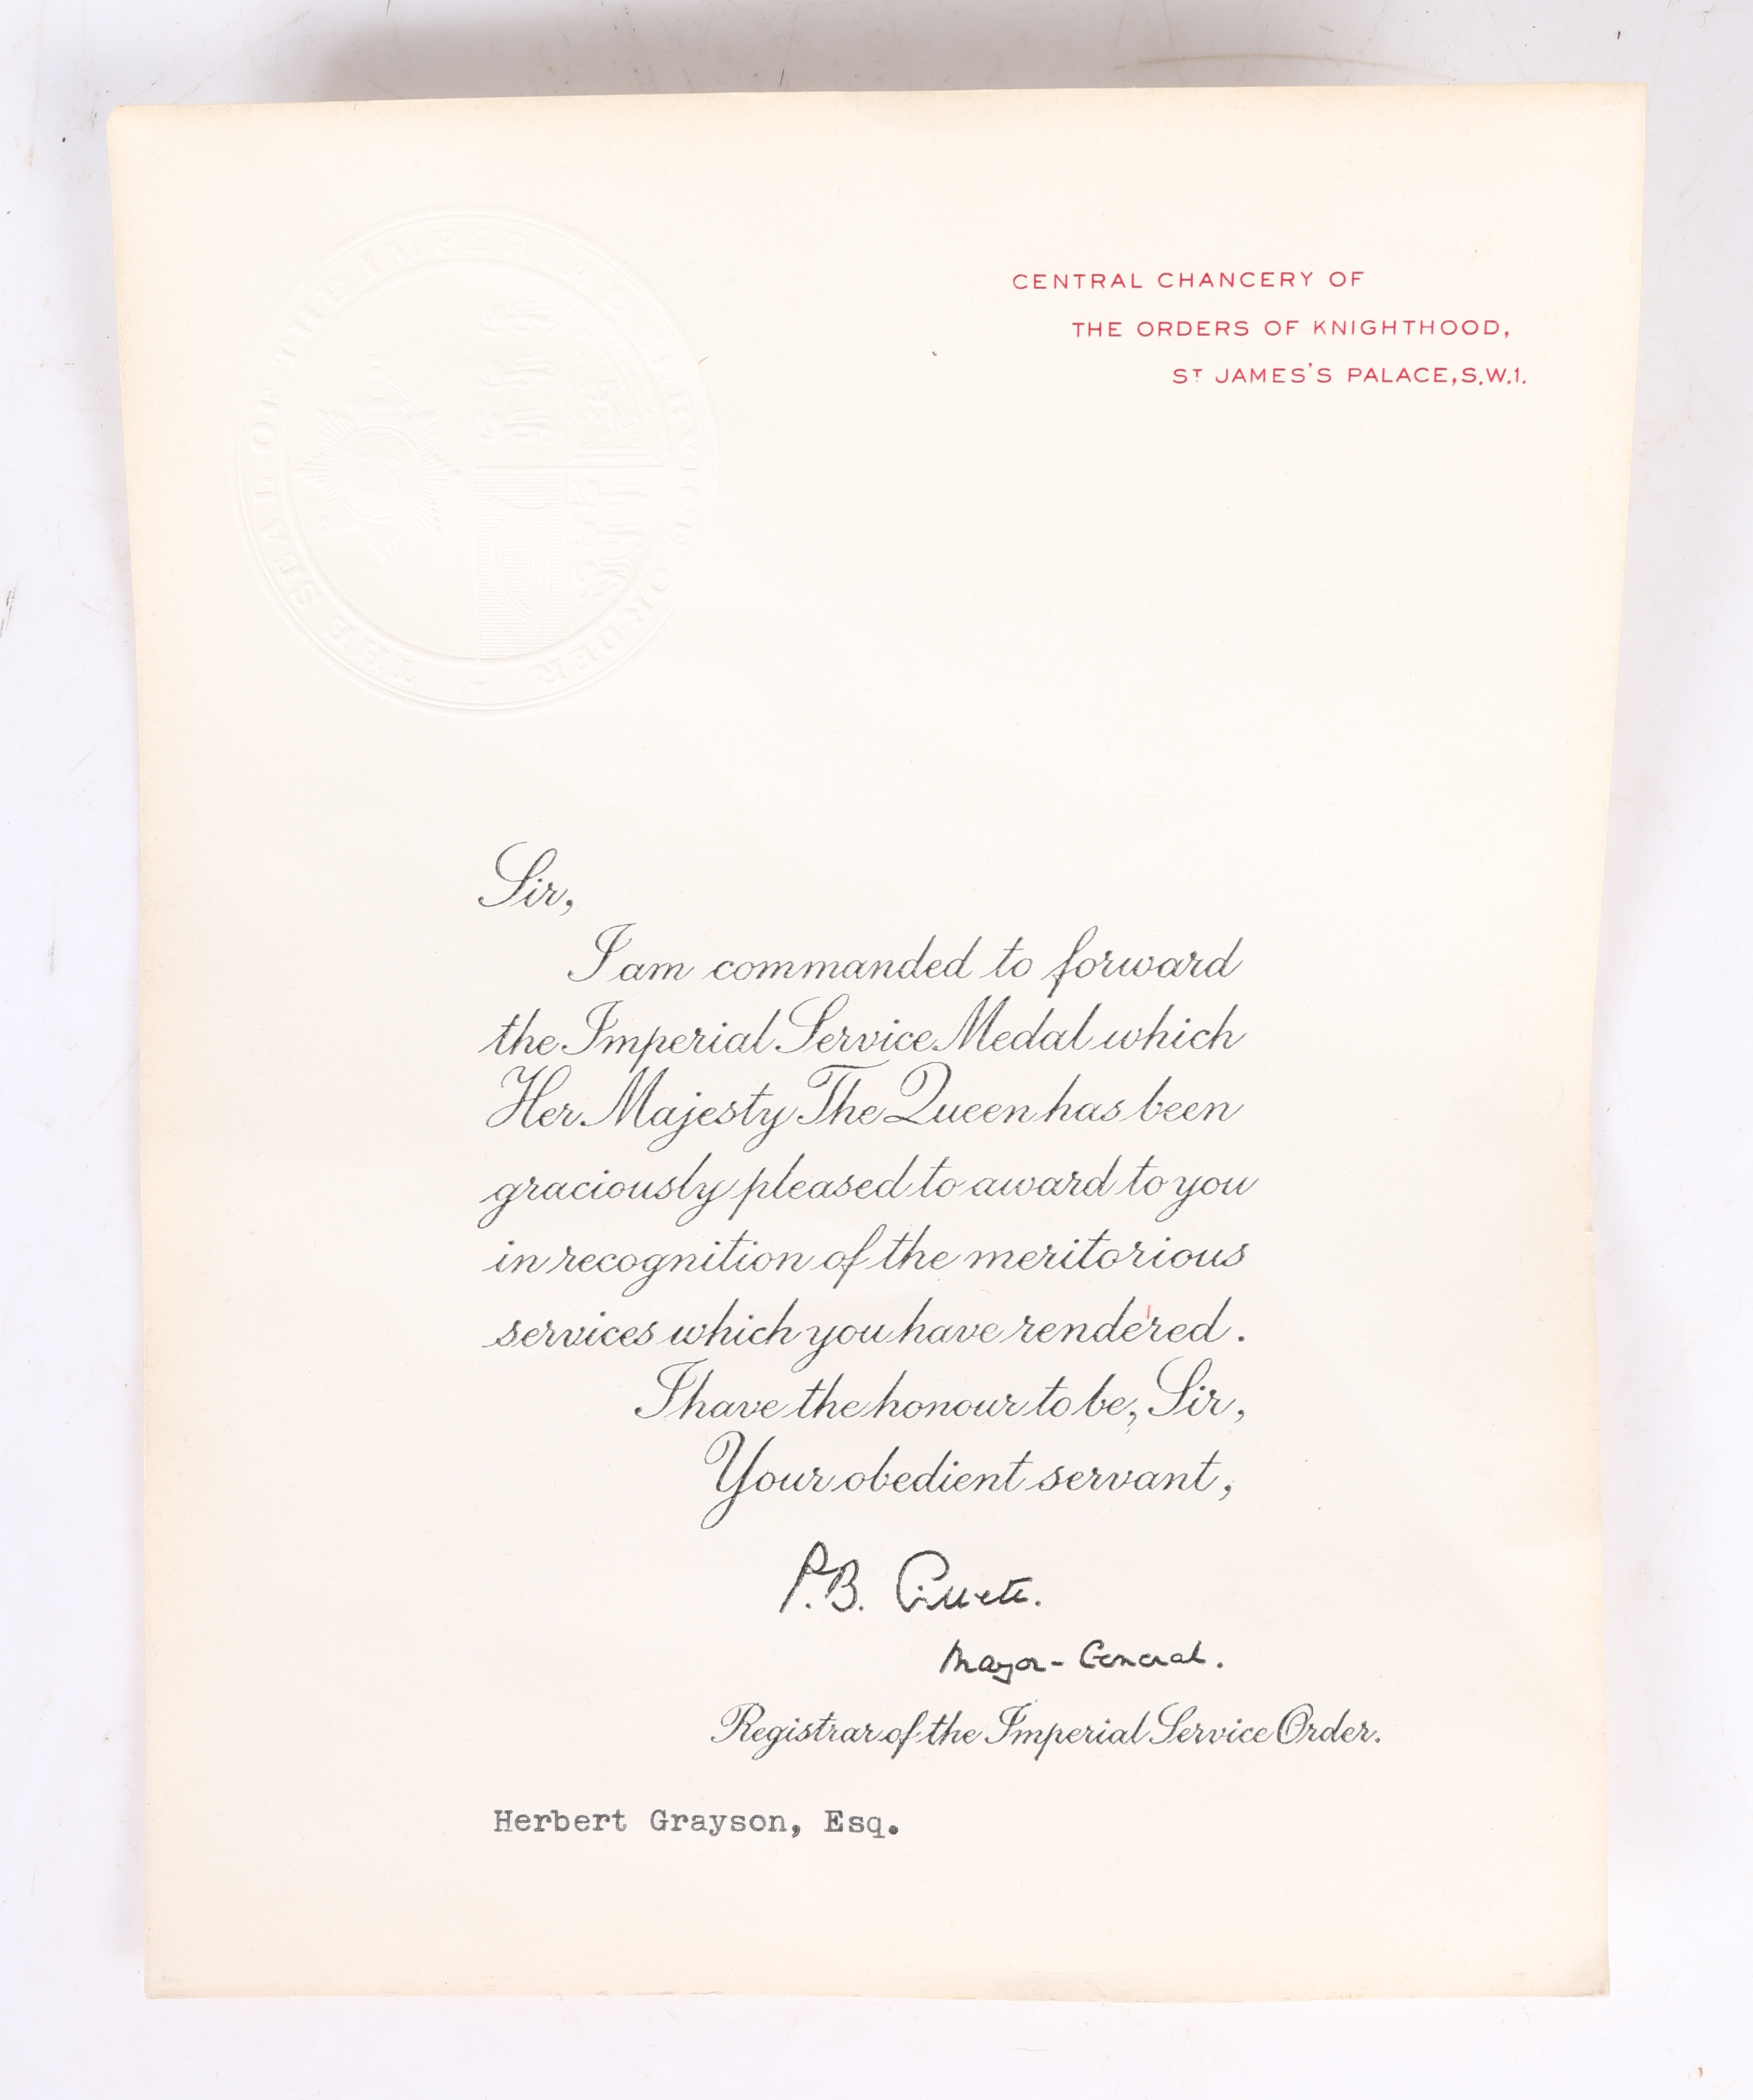 THE SEAL OF THE IMPERIAL SERVICE ORDER
CENTRAL CHANCERY OF
THE ORDERS OF KNIGHTHOOD,
ST JAMES'S PALACE, S.W.1.
Sir,
I am commanded to forward
the Imperial Service Medal which
Her Majesty The Queen has been
graciously pleased to award to you
in recognition of the meritorious
services which you have rendered.
I have the honour to be, Sir,
Your obedient servant,
P.B.
Major-General.
Registrar of the Imperial Service Order.
Herbert Grayson, Esq.